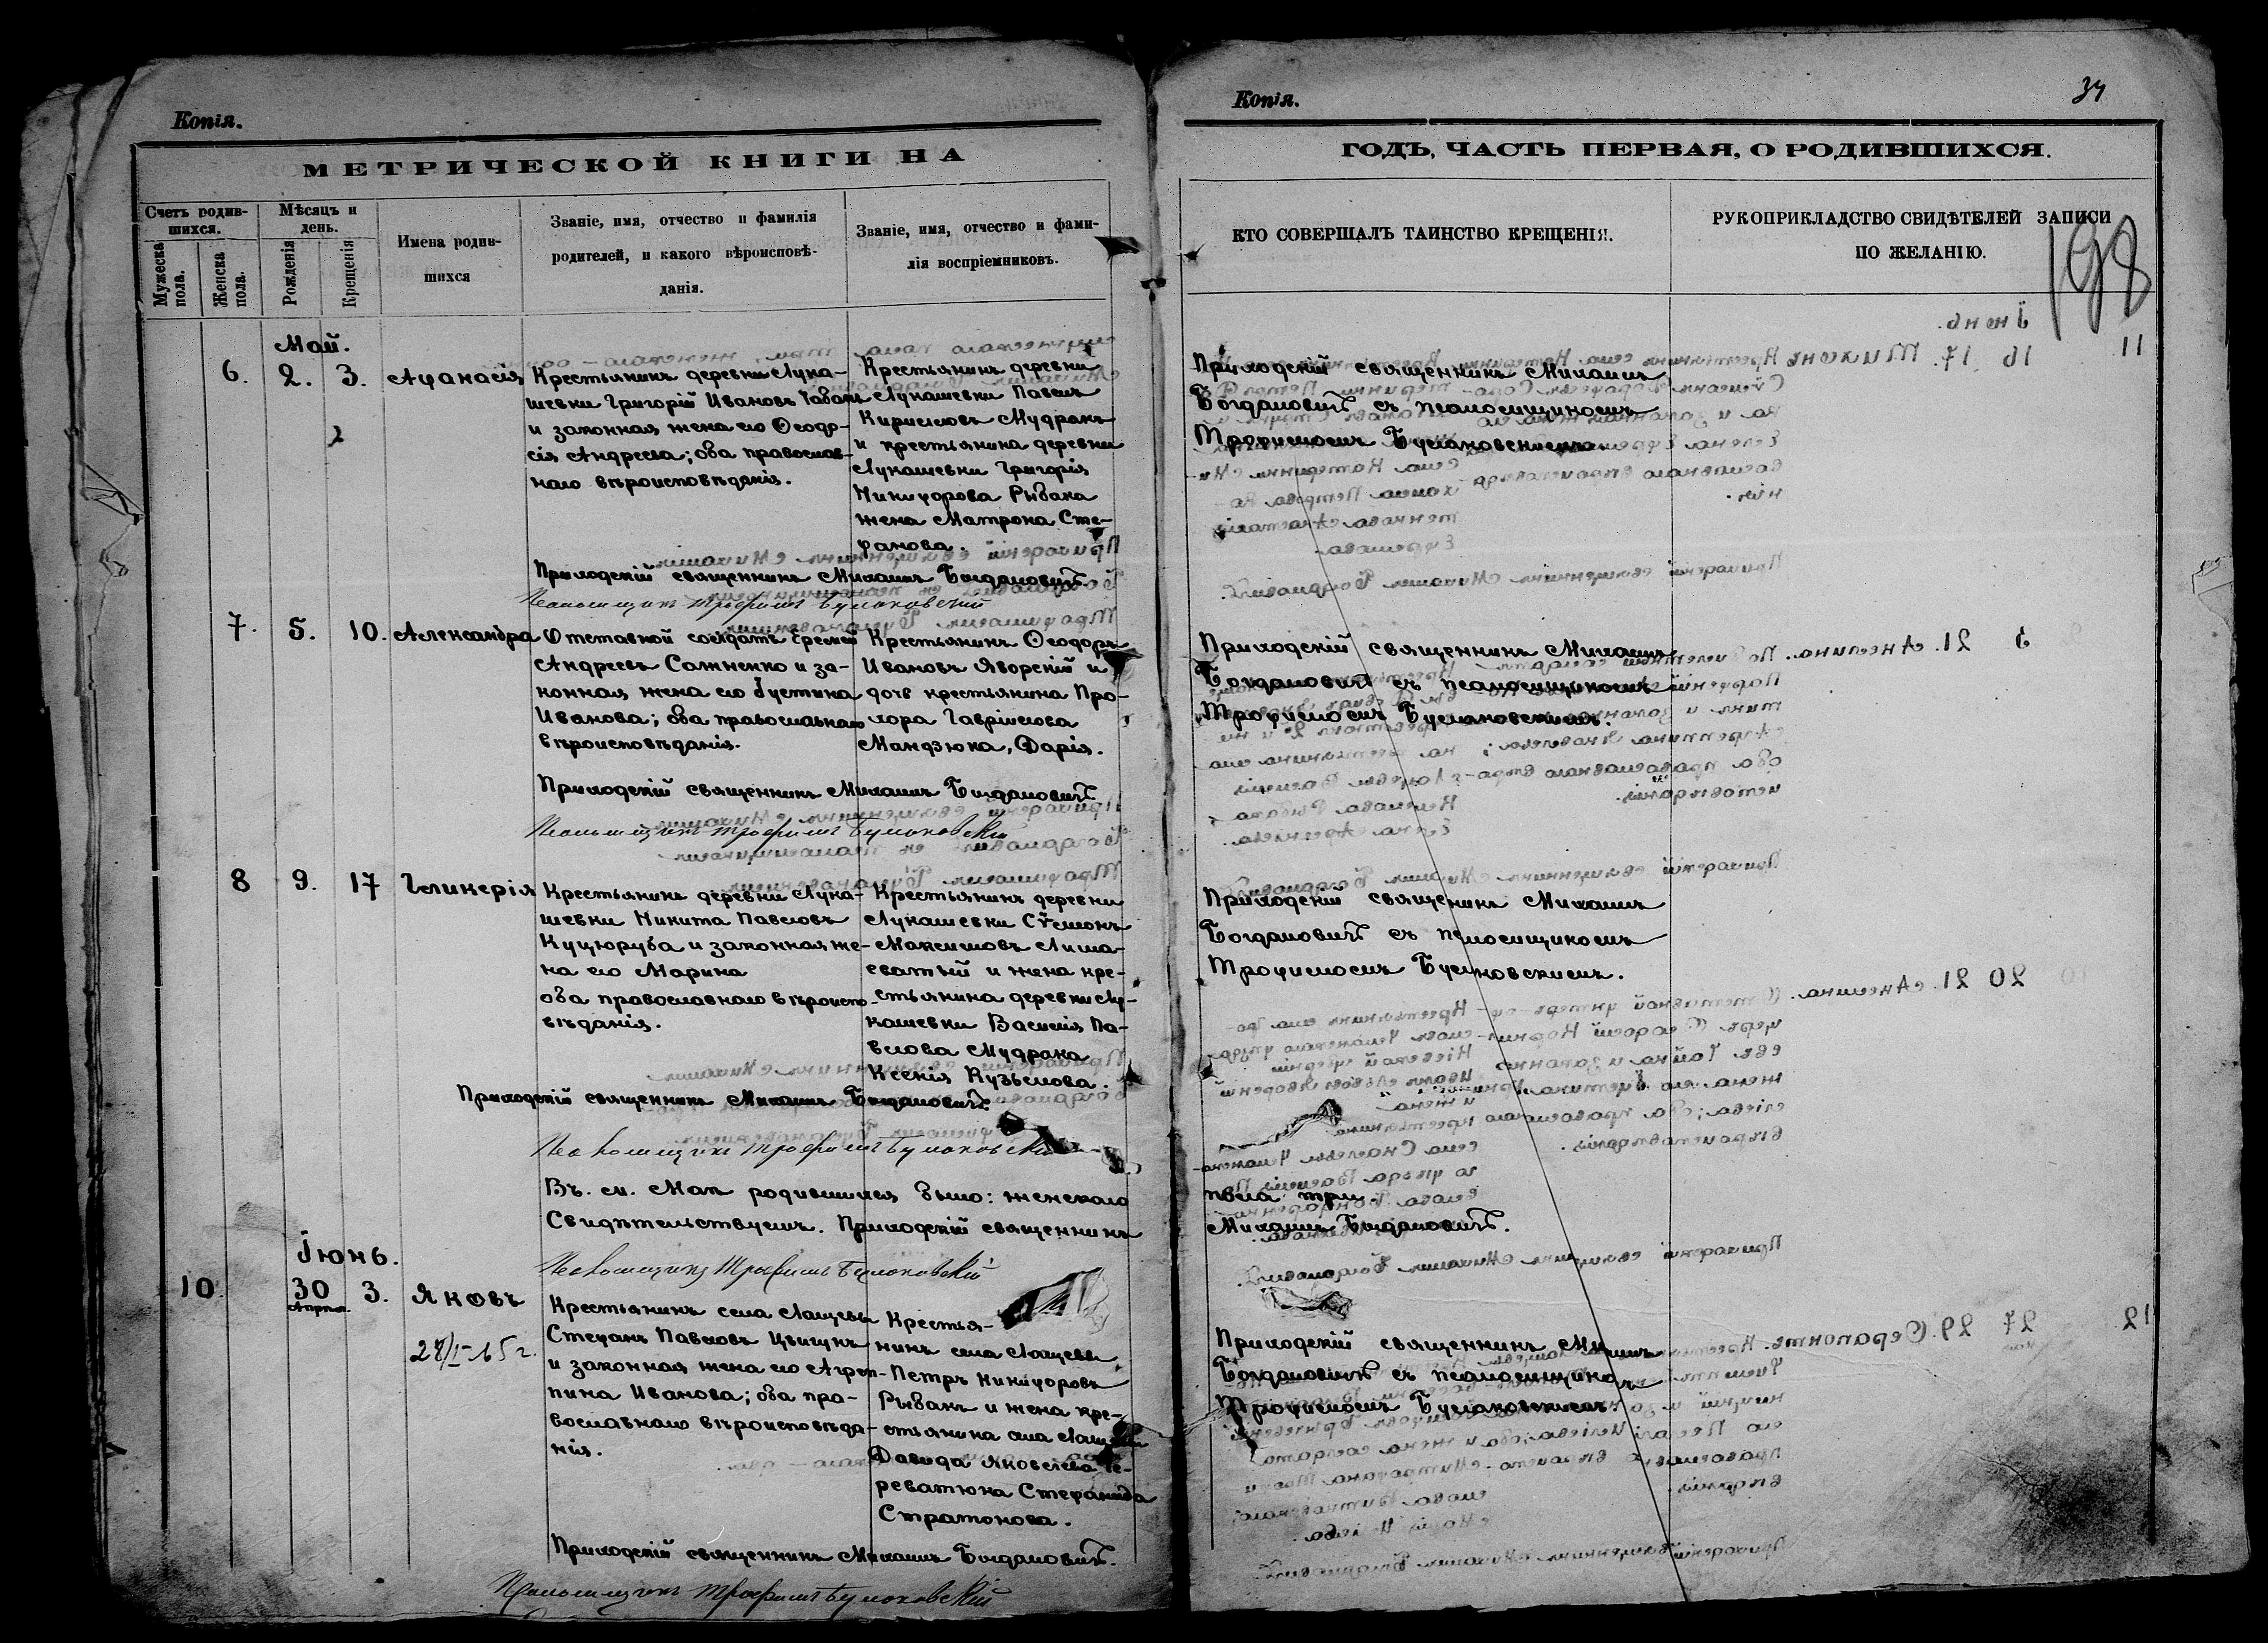 Копія.
МЕТРИЧЕСКОЙ КНИГИ НА
Счетъ родив-
шихся.
Мужеска
пола.
Женска
пола.
Мѣсяцъ и
день.
Рожденія
Крещенія
Имена родив-
шихся
Званіе, имя, отчество и фамилія
родителей, и какого вѣроисповѣ-
данія.
Званіе, имя, отчество и фами-
лія воспріемниковъ.
Май.
6. 2. 3. Афанасія
Крестьянинъ деревни Лука-
шевки Григорій Ивановъ
и законная жена его Ѳеодо-
сія Андреева; оба православ-
наго вѣроисповѣданія.
Крестьянинъ деревни
Лукашевки Павелъ
Кирилловъ Мудракъ
и крестьянина деревни
Лукашевки Григорія
Никифорова Рыбака
жена Матрона Сте-
фанова.
Приходскій священникъ Михаилъ Богдановичъ
Псаломщикъ Трофимъ
7. 5. 10. Александра
Отставной солдатъ Еремей
Андреевъ Сажненко и за-
конная жена его Іустина
Иванова; оба православнаго
вѣроисповѣданія.
Крестьянинъ Ѳеодоръ
Ивановъ Яворскій и
дочь крестьянина Про-
хора Гавріилова
Мандзюка, Дарія.
Приходскій священникъ Михаилъ Богдановичъ
Псаломщикъ Трофимъ
8 9. 17 Гликерія
Крестьянинъ деревни Лука-
шевки Никита Павловъ
Куцюруба и законная же-
на его Марина
оба православнаго вѣроиспо-
вѣданія.
Крестьянинъ деревни
Лукашевки Сѵмеонъ
Максимовъ Лиша-
еватый и жена кре-
стьянина деревни Лу-
кашевки Василія Па-
влова Мудрака
Ксенія Кузьмова.
Приходскій священникъ Михаилъ Богдановичъ.
Псаломщикъ Трофимъ
Въ м. Маѣ родившихся было: женскаго
Свидѣтельствуемъ. Приходскій священникъ
Псаломщикъ Трофимъ
Іюнь.
10. 30 3. Яковъ
Апрѣля.
28/I-15 г.
Крестьянинъ села Лащевы
Стефанъ Павловъ Цвицунъ
и законная жена его Агреп-
пина Иванова; оба пра-
вославнаго вѣроисповѣда-
нія.
Крестья-
нинъ села Лащевы
Петръ Никифоровъ
Рыбакъ и жена кре-
стьянина села Лащевы
Давида Яковлева Ге-
реватюка Стефанида
Стратонова.
Приходскій священникъ Михаилъ Богдановичъ.
Псаломщикъ Трофимъ
Копія.
34
198
ГОДЪ, ЧАСТЬ ПЕРВАЯ, О РОДИВШИХСЯ.
КТО СОВЕРШАЛЪ ТАИНСТВО КРЕЩЕНІЯ.
РУКОПРИКЛАДСТВО СВИДѢТЕЛЕЙ ЗАПИСИ
ПО ЖЕЛАНІЮ.
Приходскій священникъ Михаилъ
Богдановичъ съ псаломщикомъ
Трофимомъ
Приходскій священникъ Михаилъ
Богдановичъ съ псаломщикомъ
Трофимомъ
Приходскій священникъ Михаилъ
Богдановичъ съ псаломщикомъ
Трофимомъ
пола три.
Михаилъ Богдановичъ.
Приходскій священникъ Михаилъ
Богдановичъ съ псаломщикомъ
Трофимомъ